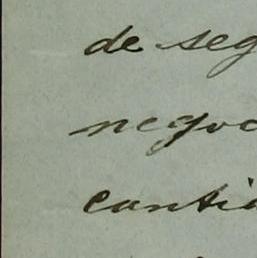 de seg
negoc
cantid